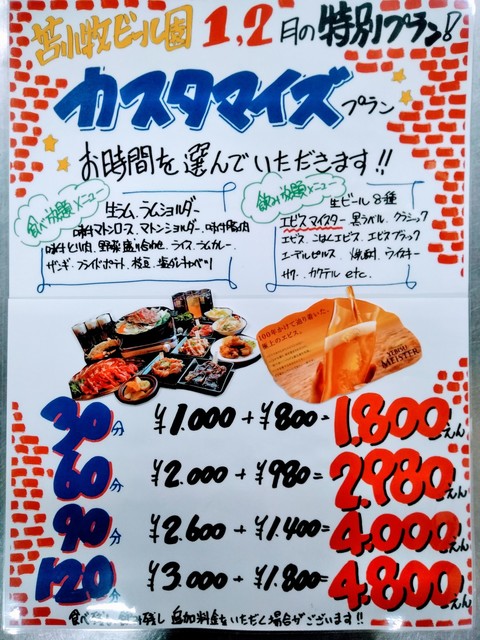 苫小牧ビール園 1,2月の特別プラン!
カスタマイズプラン
お時間を選んでいただきます!!
食べ放題メニュー
生ラム、ラムショルダー
味付マトンロース、マトンショルダー、味付豚肉
味付とり肉、野菜盛り合わせ、ライス、ラムカレー、
ザンギ、フライドポテト、枝豆、塩ダレキャベツ
飲み放題メニュー
生ビール8種
エビスマイスター、黒ラベル、クラシック
エビス、こはくエビス、エビスブラック
エーデルピルス、焼酎、ウイスキー
サワー、カクテル etc.
100年かけて辿り着いた、
極上のエビス。
YEBISU
MEISTER
30分 ¥1.000+¥800=1.800えん
60分 ¥2.000+¥980=2.980えん
90分 ¥2.600+¥1.400=4.000えん
120分 ¥3.000+¥1.800=4.800えん
食べ残し 飲み残し 追加料金をいただく場合がございます!!